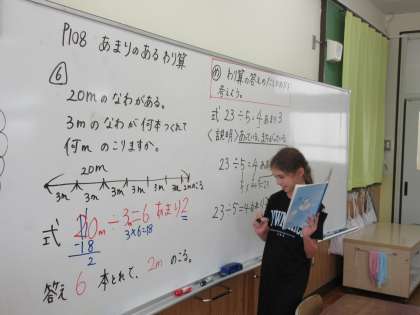 P108 あまりのあるわり算
⑥
20mのなわがある。
3mのなわが何本つくれて
何mのこりますか。
20m
3m 3m 3m 3m 3m 3m 2mのこる
式 20m÷3m=6 あまり2
-18
2
3×6=18
答え 6 本とれて、2m のこる。
わり算の答えの
考えよう。
式 23÷5=4 あまり3
〈説明〉
23÷5=4 あま
23÷5=4 あま